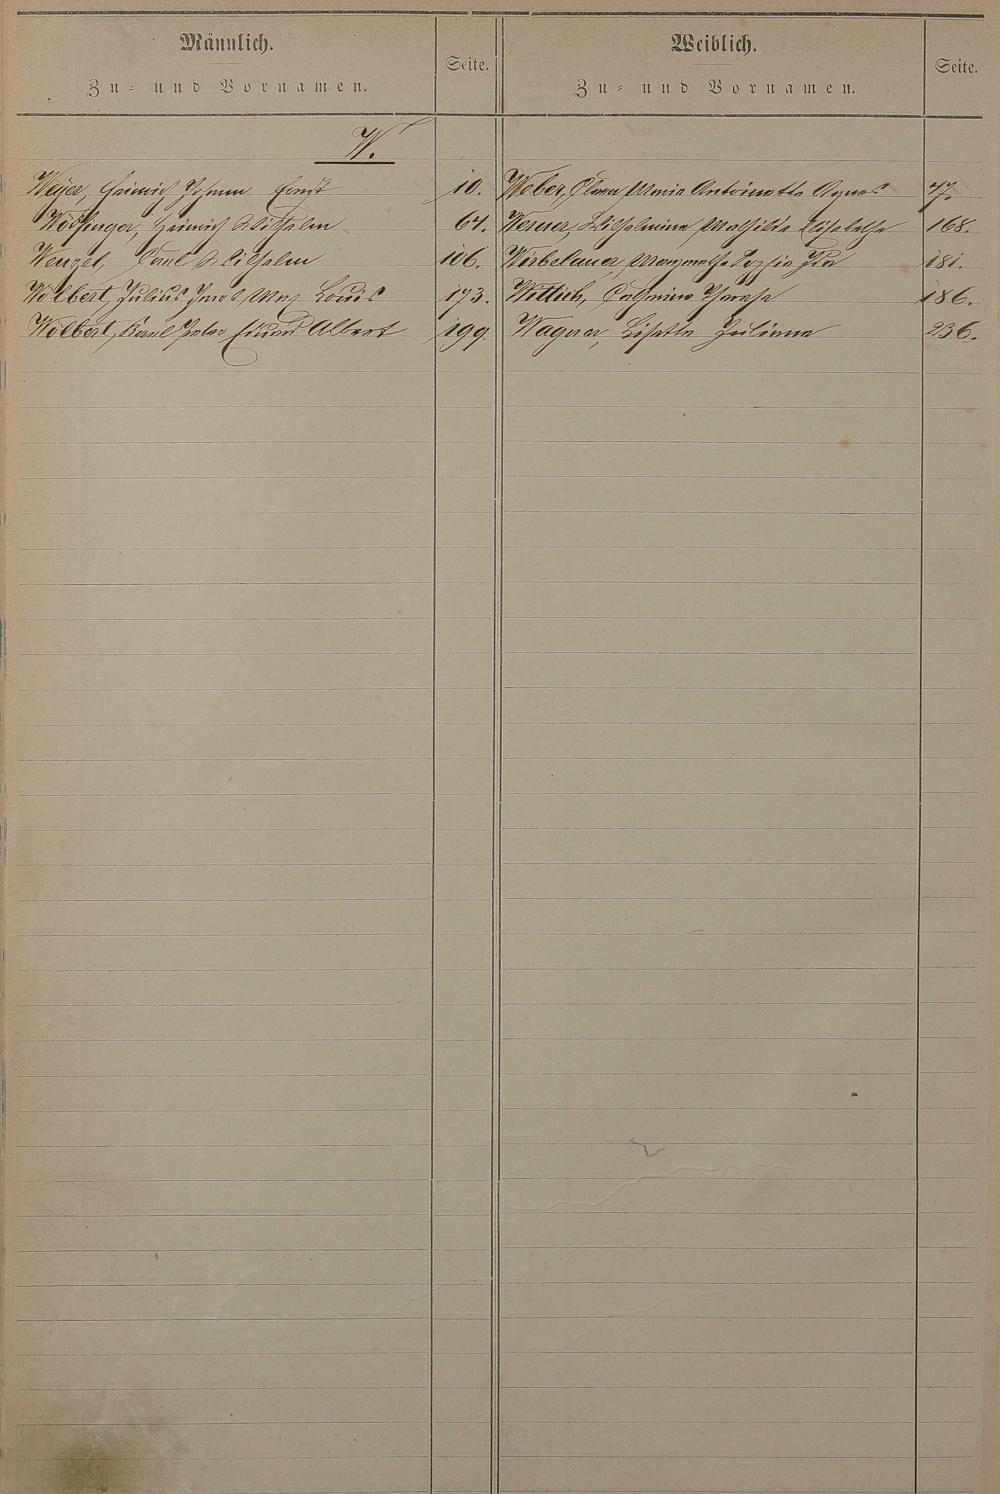 Männlich.
Zu- und Vornamen.
Seite.
Weiblich.
Zu- und Vornamen.
Seite.
W.
Weijer, Heinrich Johann Ernst 10.
Wölfinger, Heinrich Wilhelm 64.
Wenzel, Carl Wilhelm 106.
Wolbert, Julius Jacob Max Louis 173.
Wolbert, Karl Peter Eduard Albert 199.
Weber, Clara Maria Antoinette Agnes 47.
Werner, Wilhelmine Mathilde Elisabethe 168.
Wirbelauer, Margarethe Sophie Ida 181.
Wittich, Cathrine Therese 186.
Wagner, Lisette Juliane 236.